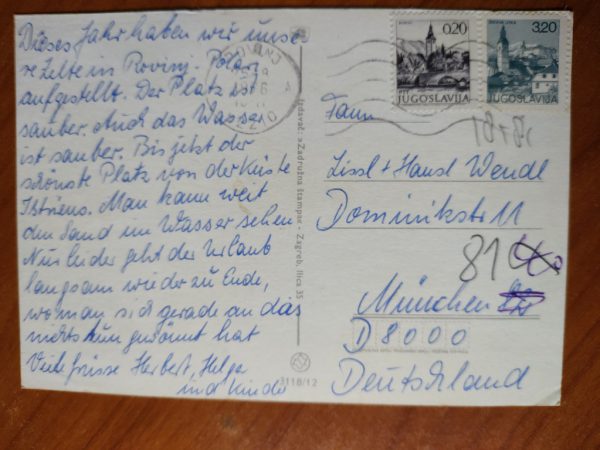 Dieses Jahr haben wir unse-
re Zelte in Rovinj - Polari
aufgestellt. Der Platz ist
sauber. Auch das Wasser
ist sauber. Bis jetzt der
schönste Platz von der Küste
Istriens. Man kann weit
den Sand im Wasser sehen
Nur leider geht der Urlaub
langsam wieder zu Ende,
wo man sich gerade an das
nichts tun gewönnt hat
Viele Grüsse Herbert, Helga
und Kinder
ROVINJ
Izdavač: »Zadružna štampa« - Zagreb, Ilica 35
3118/12
0,20
JUGOSLAVIJA
3,20
JUGOSLAVIJA
Fam.
Lissl + Hansl Wendl
Dominikstr 11
81
München
D 8000
Deutschland